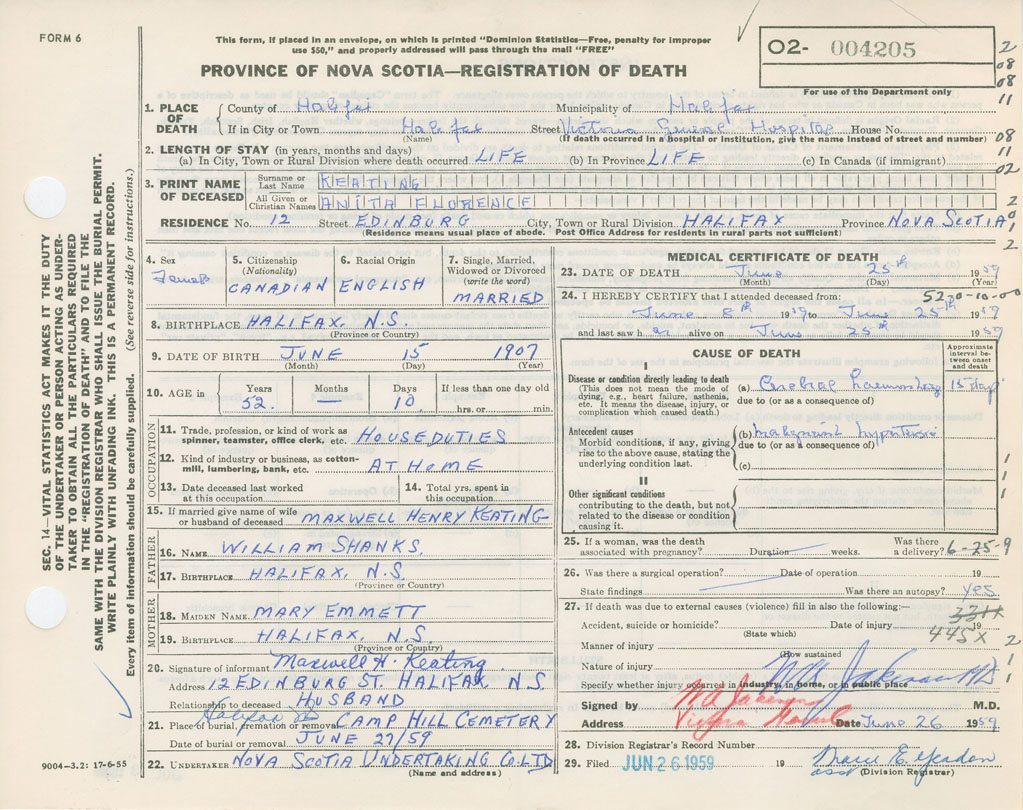 FORM 6
This form, if placed in an envelope, on which is printed "Dominion Statistics—Free, penalty for improper
use $50," and properly addressed will pass through the mail "FREE"
PROVINCE OF NOVA SCOTIA—REGISTRATION OF DEATH
O2- 004205
For use of the Department only
2
08
08
11
08
11
02
2
0
2
SEC. 14—VITAL STATISTICS ACT MAKES IT THE DUTY
OF THE UNDERTAKER OR PERSON ACTING AS UNDER-
TAKER TO OBTAIN ALL THE PARTICULARS REQUIRED
IN THE "REGISTRATION OF DEATH" AND TO FILE THE
SAME WITH THE DIVISION REGISTRAR WHO SHALL ISSUE THE BURIAL PERMIT.
WRITE PLAINLY WITH UNFADING INK. THIS IS A PERMANENT RECORD.
Every item of information should be carefully supplied. (See reverse side for instructions.)
1. PLACE OF DEATH
County of Halifax Municipality of Halifax
If in City or Town Halifax Street Victoria General Hospital House No.
(Name) (If death occurred in a hospital or institution, give the name instead of street and number)
2. LENGTH OF STAY (in years, months and days)
(a) In City, Town or Rural Division where death occurred LIFE (b) In Province LIFE (c) In Canada (if immigrant)
3. PRINT NAME OF DECEASED
Surname or Last Name KEATING
All Given or Christian Names ANITA FLORENCE
RESIDENCE No. 12 Street EDINBURG City, Town or Rural Division HALIFAX Province NOVA SCOTIA
(Residence means usual place of abode. Post Office Address for residents in rural parts not sufficient)
4. Sex Female
5. Citizenship (Nationality) CANADIAN
6. Racial Origin ENGLISH
7. Single, Married, Widowed or Divorced (write the word) MARRIED
8. BIRTHPLACE HALIFAX, N.S.
(Province or Country)
9. DATE OF BIRTH JUNE 15 1907
(Month) (Day) (Year)
10. AGE in Years 52. Months — Days 10. If less than one day old
hrs. or min.
OCCUPATION
11. Trade, profession, or kind of work as
spinner, teamster, office clerk, etc. HOUSEDUTIES
12. Kind of industry or business, as cotton-
mill, lumbering, bank, etc. AT HOME
13. Date deceased last worked at this occupation
14. Total yrs. spent in this occupation
15. If married give name of wife
or husband of deceased MAXWELL HENRY KEATING
FATHER
16. NAME WILLIAM SHANKS.
17. BIRTHPLACE HALIFAX, N.S.
(Province or Country)
MOTHER
18. MAIDEN NAME MARY EMMETT
19. BIRTHPLACE HALIFAX, N.S.
(Province or Country)
20. Signature of informant Maxwell H. Keating.
Address 12 EDINBURG ST. HALIFAX N.S.
Relationship to deceased HUSBAND
21. Place of burial, cremation or removal CAMP HILL CEMETERY
Halifax
Date of burial or removal JUNE 27/59
22. UNDERTAKER NOVA SCOTIA UNDERTAKING CO. LTD
(Name and address)
9004-3.2: 17-6-55
MEDICAL CERTIFICATE OF DEATH
23. DATE OF DEATH June 25th 1959
(Month) (Day) (Year)
24. I HEREBY CERTIFY that I attended deceased from: 52-0-10-00
June 8th 1959 to June 25th 1959
and last saw her alive on June 25th 1959
CAUSE OF DEATH
Approximate interval between onset and death
I
Disease or condition directly leading to death
(This does not mean the mode of
dying, e.g., heart failure, asthenia,
etc. It means the disease, injury, or
complication which caused death.)
(a) Cerebral haemorrhage 15 days
due to (or as a consequence of)
Antecedent causes
Morbid conditions, if any, giving
rise to the above cause, stating the
underlying condition last.
(b) malignant hypertension
due to (or as a consequence of)
(c)
II
Other significant conditions
contributing to the death, but not
related to the disease or condition
causing it.
1
1
1
25. If a woman, was the death
associated with pregnancy? Duration weeks. Was there a delivery?
6-25-9
26. Was there a surgical operation? Date of operation 19
State findings Was there an autopsy? yes
27. If death was due to external causes (violence) fill in also the following:—
3311
Accident, suicide or homicide? Date of injury 19
(State which)
445X
Manner of injury
(How sustained
Nature of injury
2
1
1
Specify whether injury occurred in industry, in home, or in public place
Signed by M.D.
Address Victoria Date June 26 1959
28. Division Registrar's Record Number
29. Filed JUN 26 1959 19
(Division Registrar)